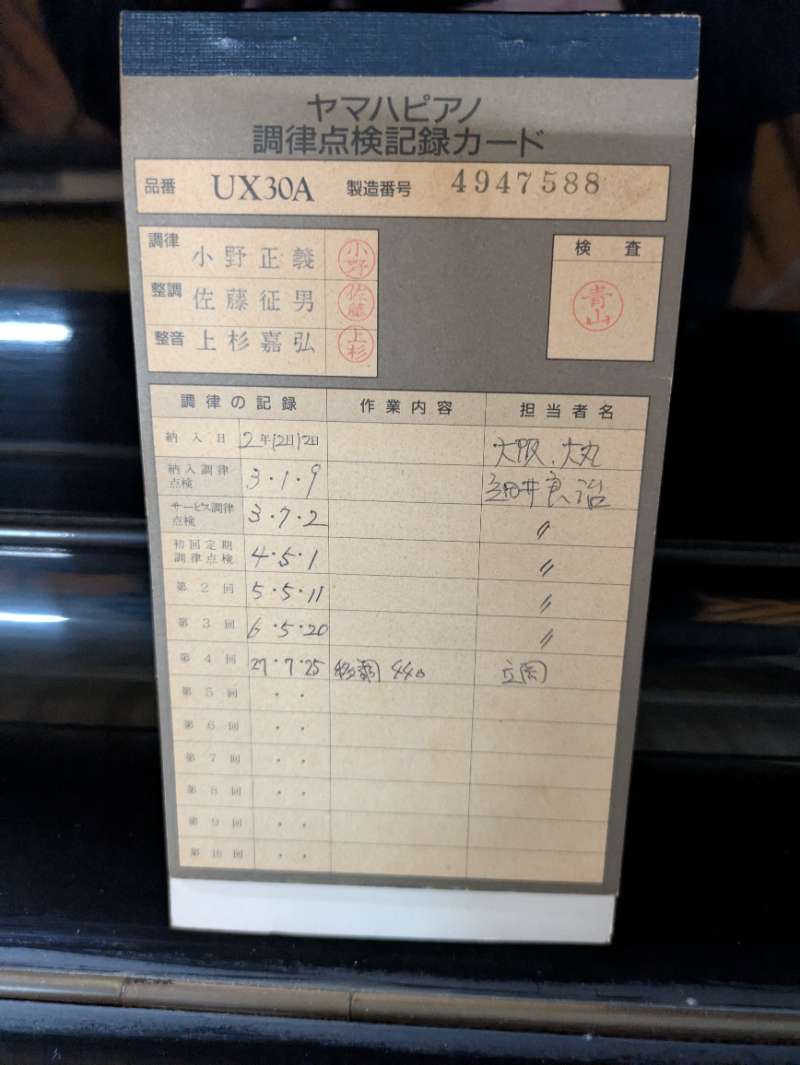 ヤマハピアノ
調律点検記録カード
品番 UX30A 製造番号 4947588
調律 小野正義 小野
検査
整調 佐藤征男 佐藤
青山
整音 上杉嘉弘 上杉
調律の記録 作業内容 担当者名
納入日 2年12月12日 大阪.大丸
納入調律
点検 3・1・9 細井良治
サービス調律
点検 3・7・2 〃
初回定期
調律点検 4・5・1 〃
第2回 5・5・11 〃
第3回 6・5・20 〃
第4回 27・7・25 440 立岡
第5回 ・ ・
第6回 ・ ・
第7回 ・ ・
第8回 ・ ・
第9回 ・ ・
第10回 ・ ・